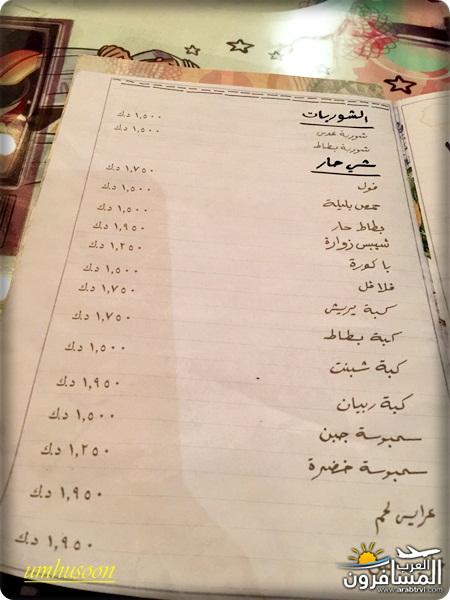 الشوربات
شوربة عدس ١,٥٠٠ د.ك
شوربة بطاط ١,٥٠٠ د.ك
شي حار
فول ١,٧٥٠ د.ك
حمص بليلة ١,٥٠٠ د.ك
بطاط حار ١,٥٠٠ د.ك
شيبس زوارة ١,٩٥٠ د.ك
باكورة ١,٢٥٠ د.ك
فلافل ١,٥٠٠ د.ك
كبة بريش ١,٧٥٠ د.ك
كبة بطاط ١,٧٥٠ د.ك
كبة شبنت ١,٥٠٠ د.ك
كبة ربيان ١,٩٥٠ د.ك
سمبوسة جبن ١,٥٠٠ د.ك
سمبوسة خضرة ١,٢٥٠ د.ك
عرايس لحم ١,٩٥٠ د.ك
١,٩٥٠ د.ك
umhusoon
العرب المسافرون
www.arabtrvl.com